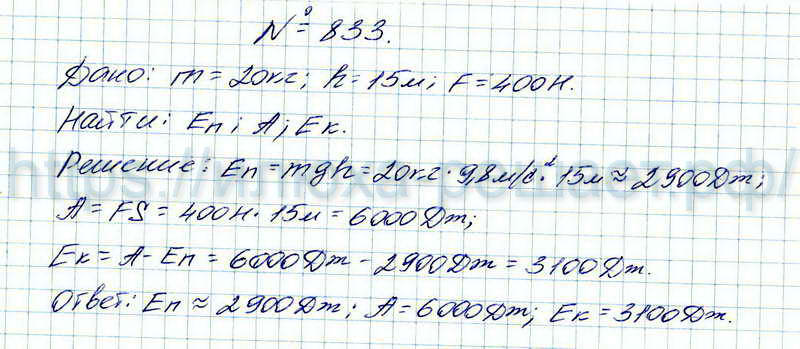 № 833.
Дано: m = 20кг; h = 15м; F = 400Н.
Найти: Eп; A; Eк.
Решение: Eп = mgh = 20кг · 9,8м/с² · 15м ≈ 2900Дж;
A = FS = 400Н · 15м = 6000Дж;
Eк = A - Eп = 6000Дж - 2900Дж = 3100Дж.
Ответ: Eп ≈ 2900Дж; A = 6000Дж; Eк = 3100Дж.